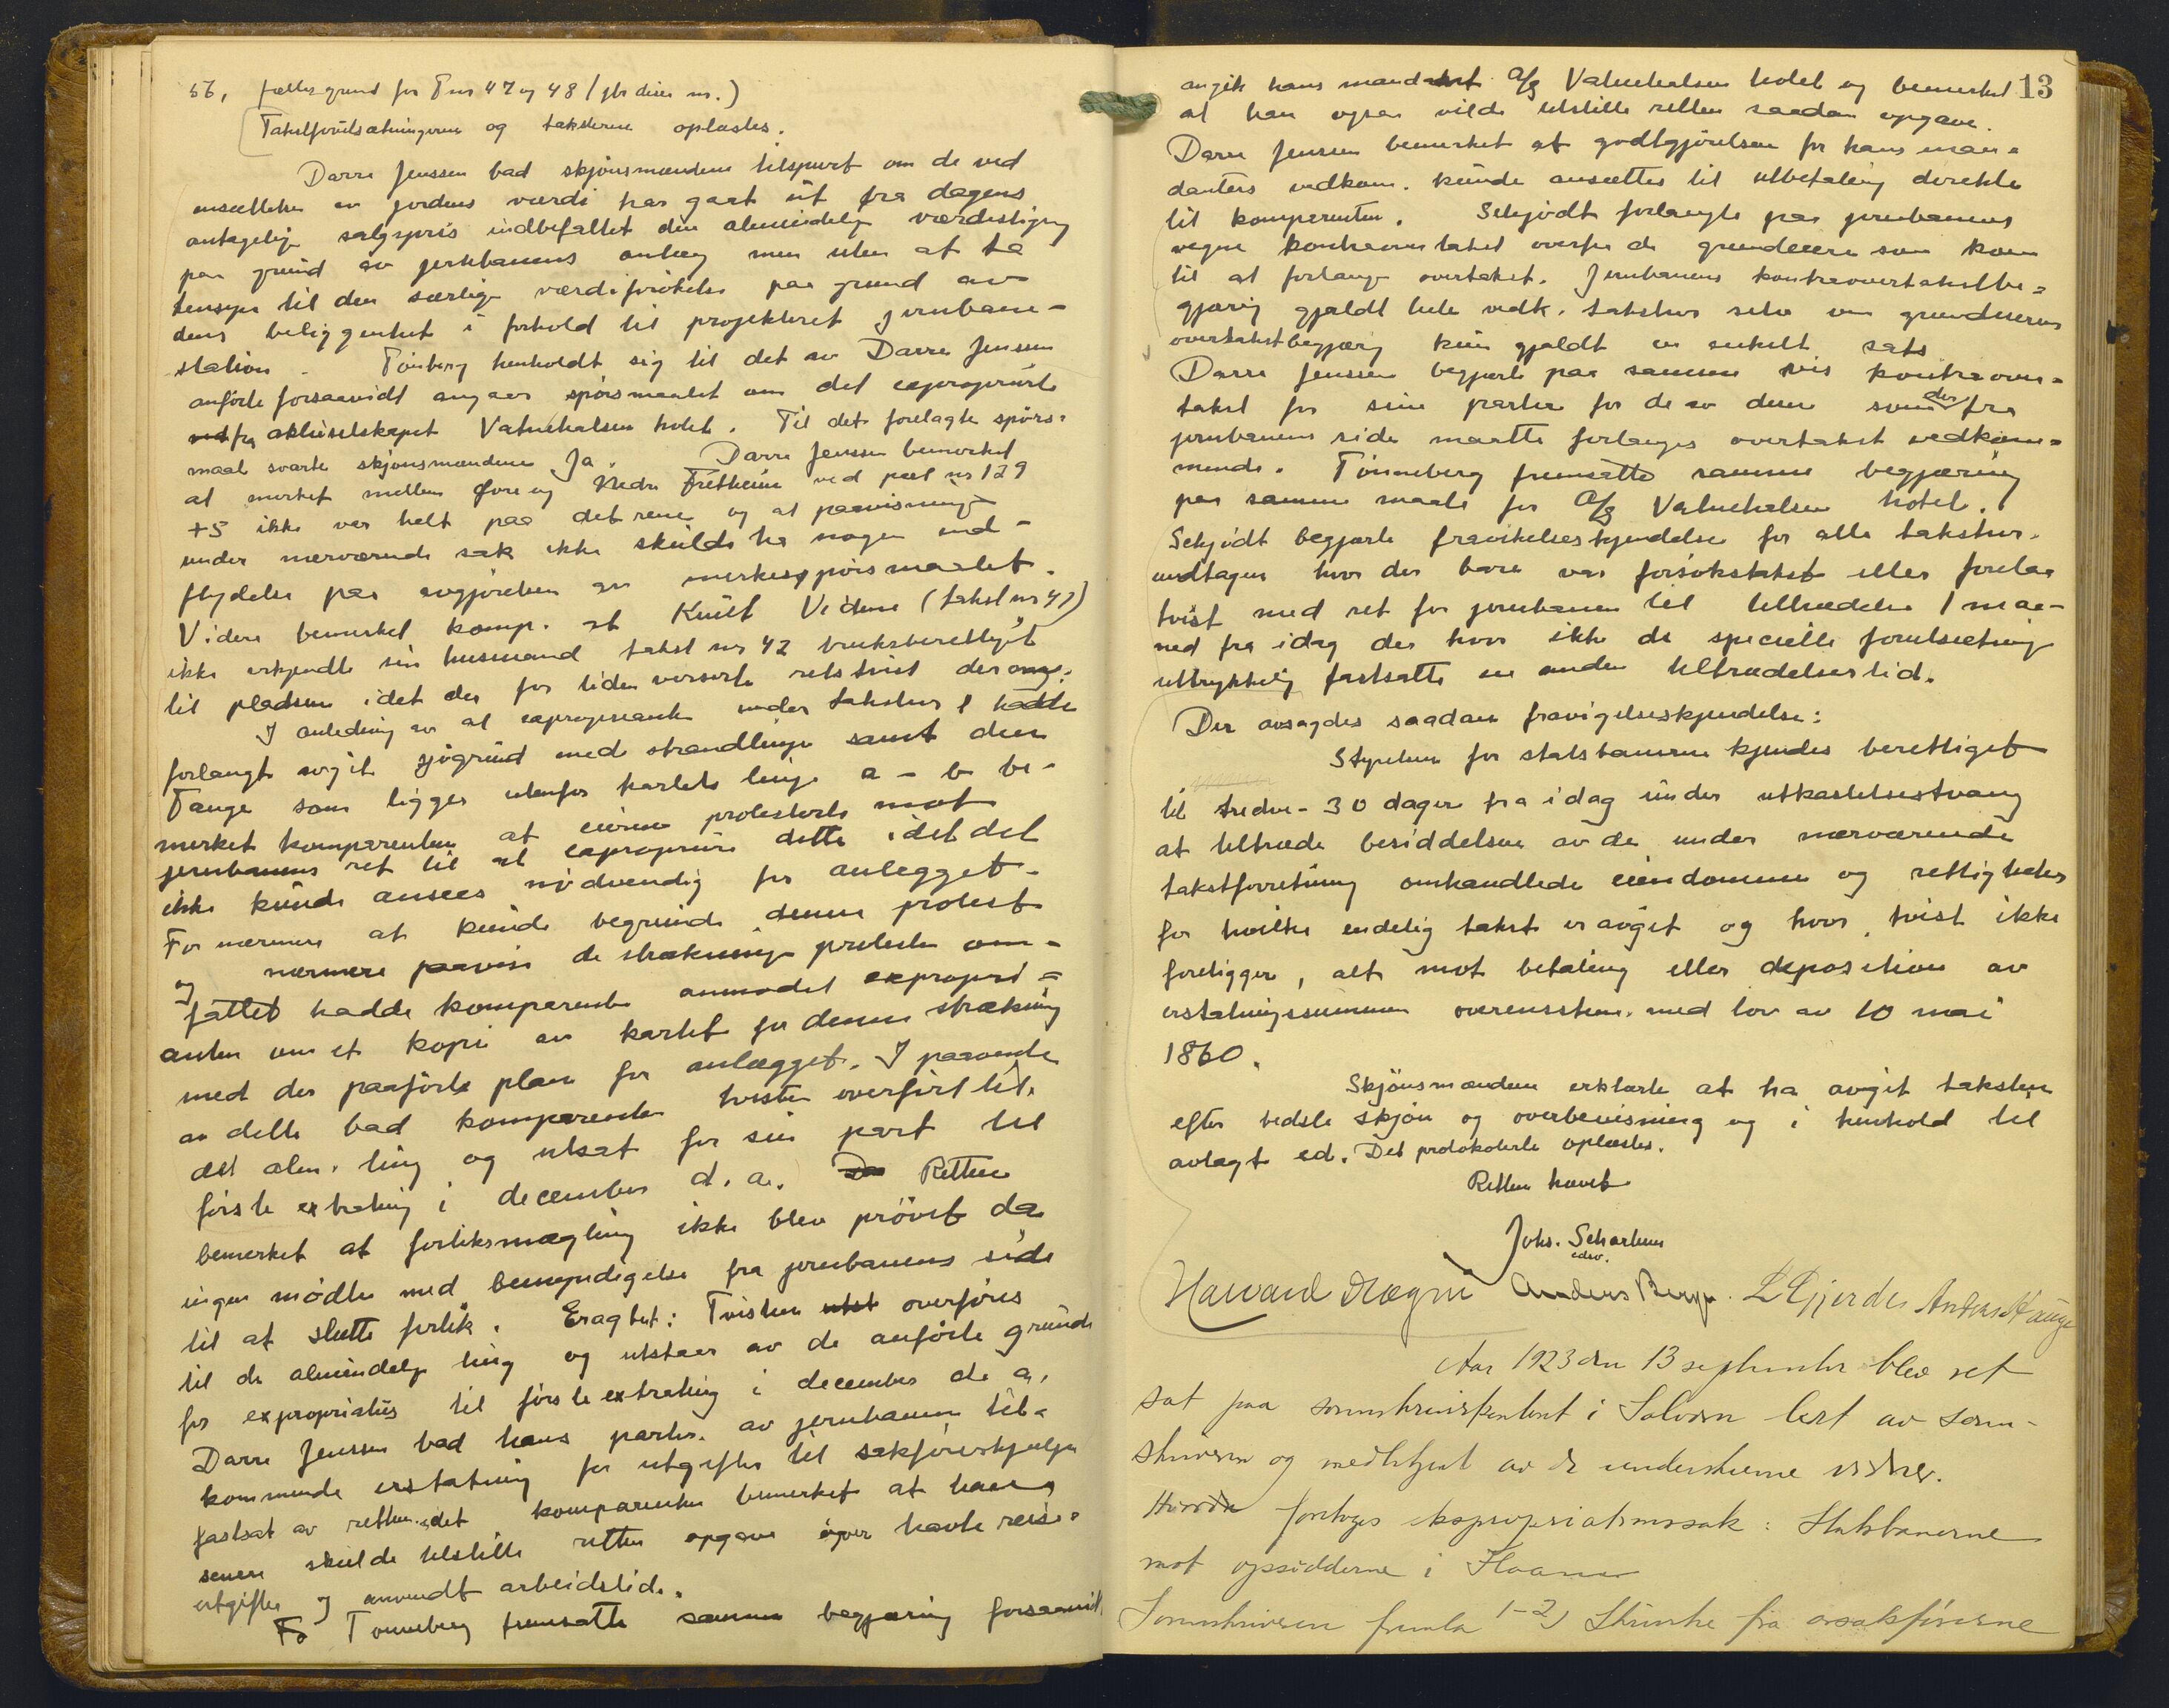 56, fælles grund for T nr 47 og 48 (jfr disse nr.)
Takstforutsætningerne og taksterne oplæstes.
Darre Jenssen bad skjønsmændene tilspurt om de ved
ansættelsen av jordens værdi har gaat ut fra dagens
antagelige salgspris indbefattet den almindelige værdistigning
paa grund av jernbanens anlæg men uten at ta
hensyn til den særlige værdiforøkelse paa grund av
dens beliggenhet i forhold til projekteret jernbane-
station. Tønberg henholdt sig til det av Darre Jenssen
anførte forsaavidt angaar spørsmaalet om det exproprierte
fra aktieselskapet Vatnehalsen hotel. Til det forelagte spørs-
maal svarte skjønsmændene Ja. Darre Jenssen bemerket
at merket mellem Øvre og Nedre Fretheim ved pæl nr 129
+5 ikke var helt paa det rene og at paavisninge
under nærværende sak ikke skulde ha nogen ind-
flydelse paa avgjørelsen av merkespørsmaalet.
Videre bemerket komp. at Knut Vidme (takst nr 41)
ikke erkjendte sin husmand takst nr 42 bruksberettiget
til pladsen idet der for tiden verserte retstvist derom.
I anledning av at exproprianten under takstnr 1 hadde
forlangt avgit sjøgrund med strandlinje samt den
Tange som ligger utenfor kartets linje a - b be-
merket komparenten at eieren protesterte mot
jernbanens ret til at expropriere dette idet det
ikke kunde ansees nødvendig for anlegget.
For nærmere at kunde begrunde denne protest
og nærmere paavise de strækninge protesten om-
fattet hadde komparenten anmodet expropri-
anten om et kopi av kartet for denne strækning
med der paaførte plan for anlægget. I paavente
av dette bad komparenten tvisten overført til
det alm. ting og utsat for sin part til
første extrating i december d. a. Retten
bemerket at forliksmægling ikke blev prøvet da
ingen mødte med bemyndigelse fra jernbanens side
til at slutte forlik. Eragtet: Tvisten overføres
til de almindelige ting og utstaar av de anførte grunde
for expropriatus til første extrating i december d. a.
Darre Jenssen bad hans parter av jernbanen til-
kommende erstatning for utgifter til sakførerhjælpe
fastsat av retten idet komparenten bemerket at han
senere skulde tilstille retten opgave over havte reise-
utgifter og anvendt arbeidstid.
Tønneberg fremsatte samme begjæring forsaavidt
13
angik hans mandant A/S Vatnehalsen hotel og bemerket
at han ogsaa vilde tilstille retten saadan opgave.
Darre Jenssen bemerket at godtgjørelsen for hans man-
danters vedkom. kunde ansættes til utbetaling direkte
til komparenten. Schjødt forlangte paa jernbanens
vegne kontraovertakst overfor de grundeiere som kom
til at forlange overtakst. Jernbanens kontraovertakstbe-
gjæring gjaldt hele vedk. takstnr selv om grundeierens
overtakstbegjæring kun gjaldt en enkelt sats
Darre Jenssen begjærte paa samme vis kontraover-
takst for sine parter for de av dem som der fra
jernbanens side maatte forlanges overtakst vedkom-
mende. Tønneberg fremsatte samme begjæring
paa samme maate for A/S Vatnehalsen hotel.
Schjødt begjærte fravikelseskjendelse for alle takstnr.
undtagen hvor der bare var forsøkstakst eller forelaa
tvist med ret for jernbanen til tiltrædelse 1 maa-
ned fra idag der hvor ikke de specielle forutsætning
uttrykkelig fastsatte en anden tiltrædelsestid.
Der avsagdes saadan fravigelseskjendelse:
Styrelsen for statsbanerne kjendes berettiget
til tredve - 30 dager fra idag under utkastelsestvang
at tiltræde besiddelsen av de under nærværende
takstforretning omhandlede eiendomme og rettigheter
for hvilke endelig takst er avgit og hvor tvist ikke
foreligger, alt mot betaling eller deposition av
erstatningssummen overensstem. med lov av 10 mai
1860.
Skjønsmændene erklærte at ha avgit taksten
efter bedste skjøn og overbevisning og i henhold til
avlagt ed. Det protokolerte oplæstes.
Retten hævet
Johs. Scharlum
edsv.
Havard Nægni Anders Berge. L Gjerdes Anders Hauge
Aar 1923 den 13 september blev ret
sat paa sorenskriverkontoret i Solvorn ledet av soren-
skriveren og medbetjent av de underskrevne vidner.
Hvorda foretoges ekspropriationssak: Statsbanerne
mot opsidderne i Flaam
Sorenskriveren fremla 1-2) Skrivelse fra o.r.sakførerne